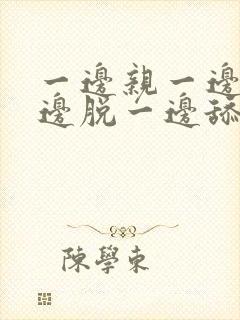 一邊親一邊
邊脱一邊舔
陳學東